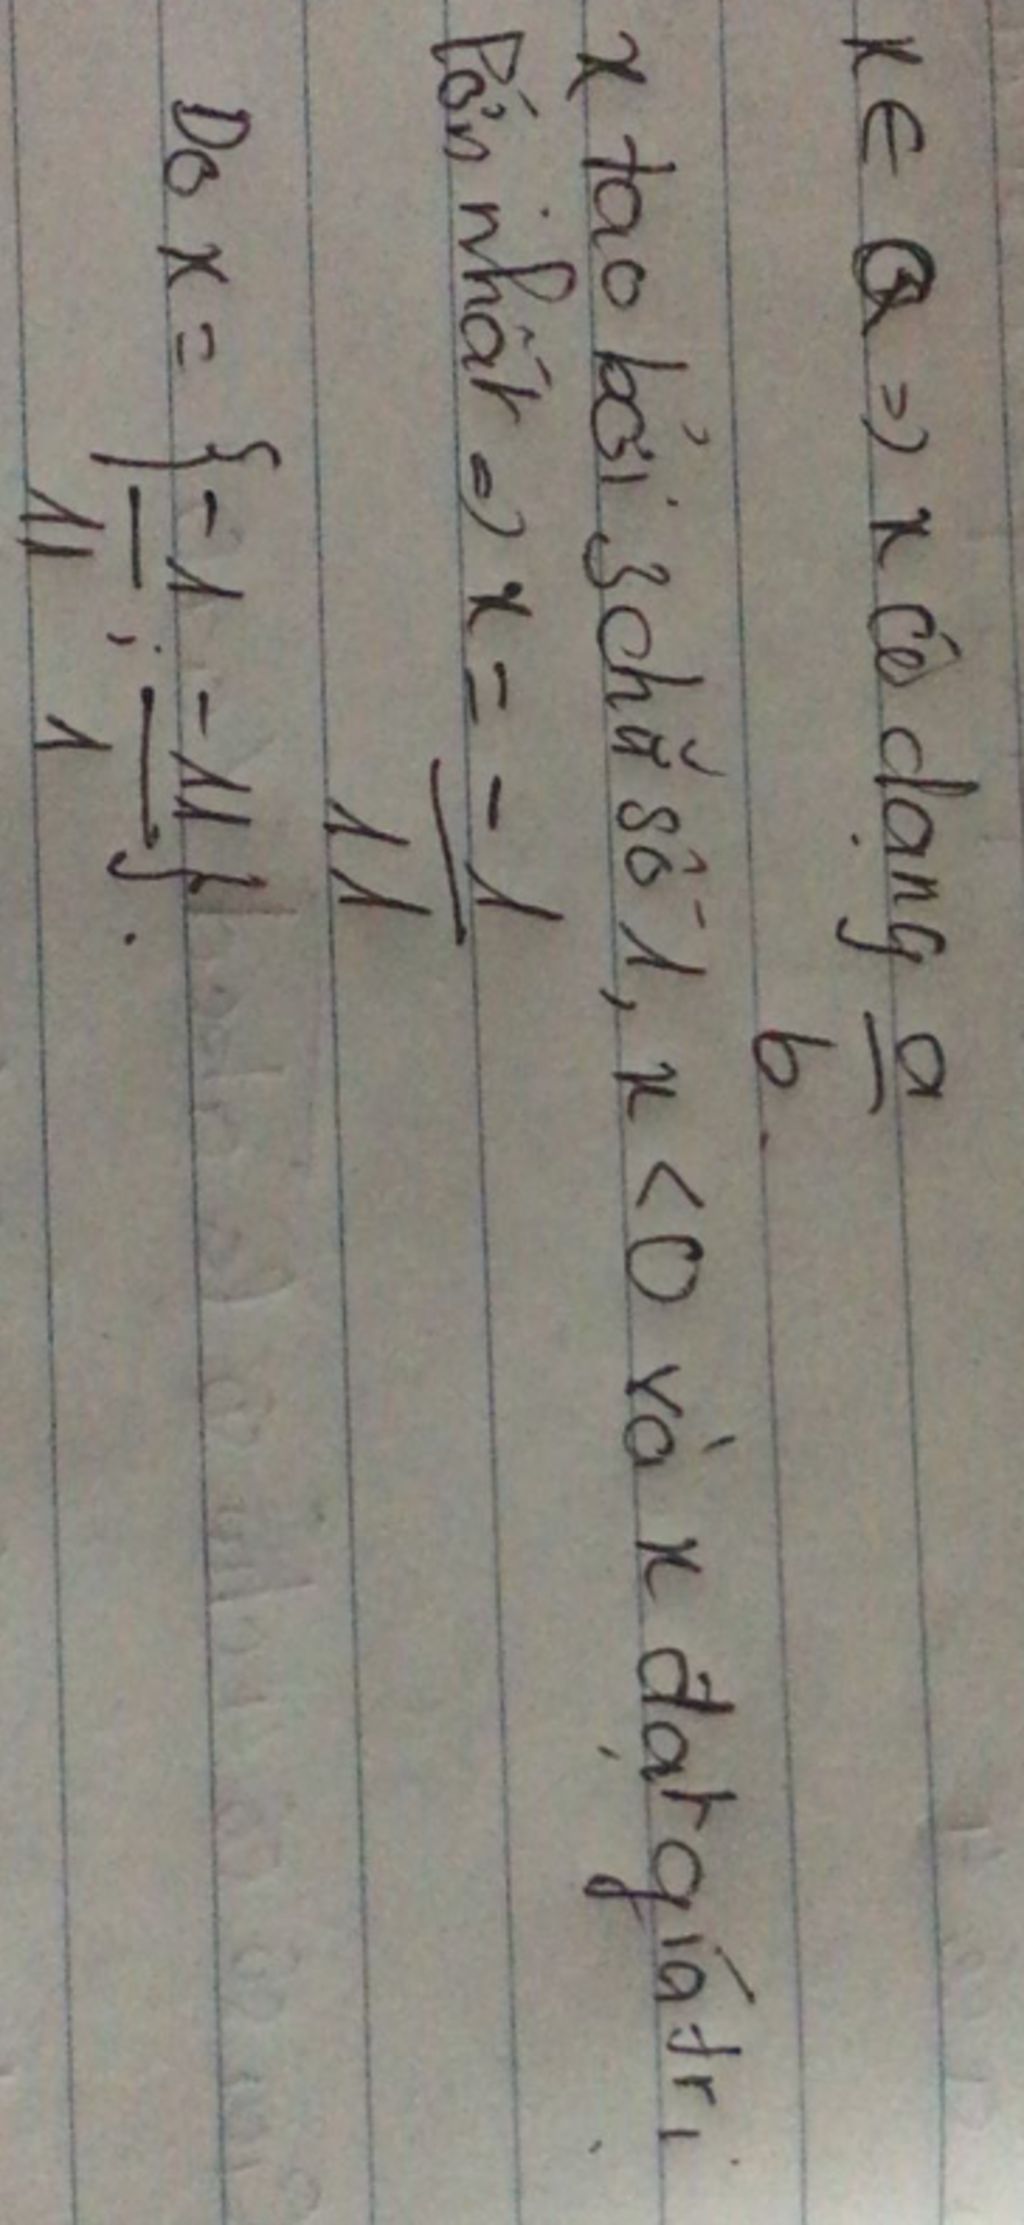 x ∈ Q => x có dạng a/b.
x tạo bởi 3 chữ số 1, x < 0 và x đạt giá trị
lớn nhất => x = -1/11
Do x = {-1/11; -11/1}.